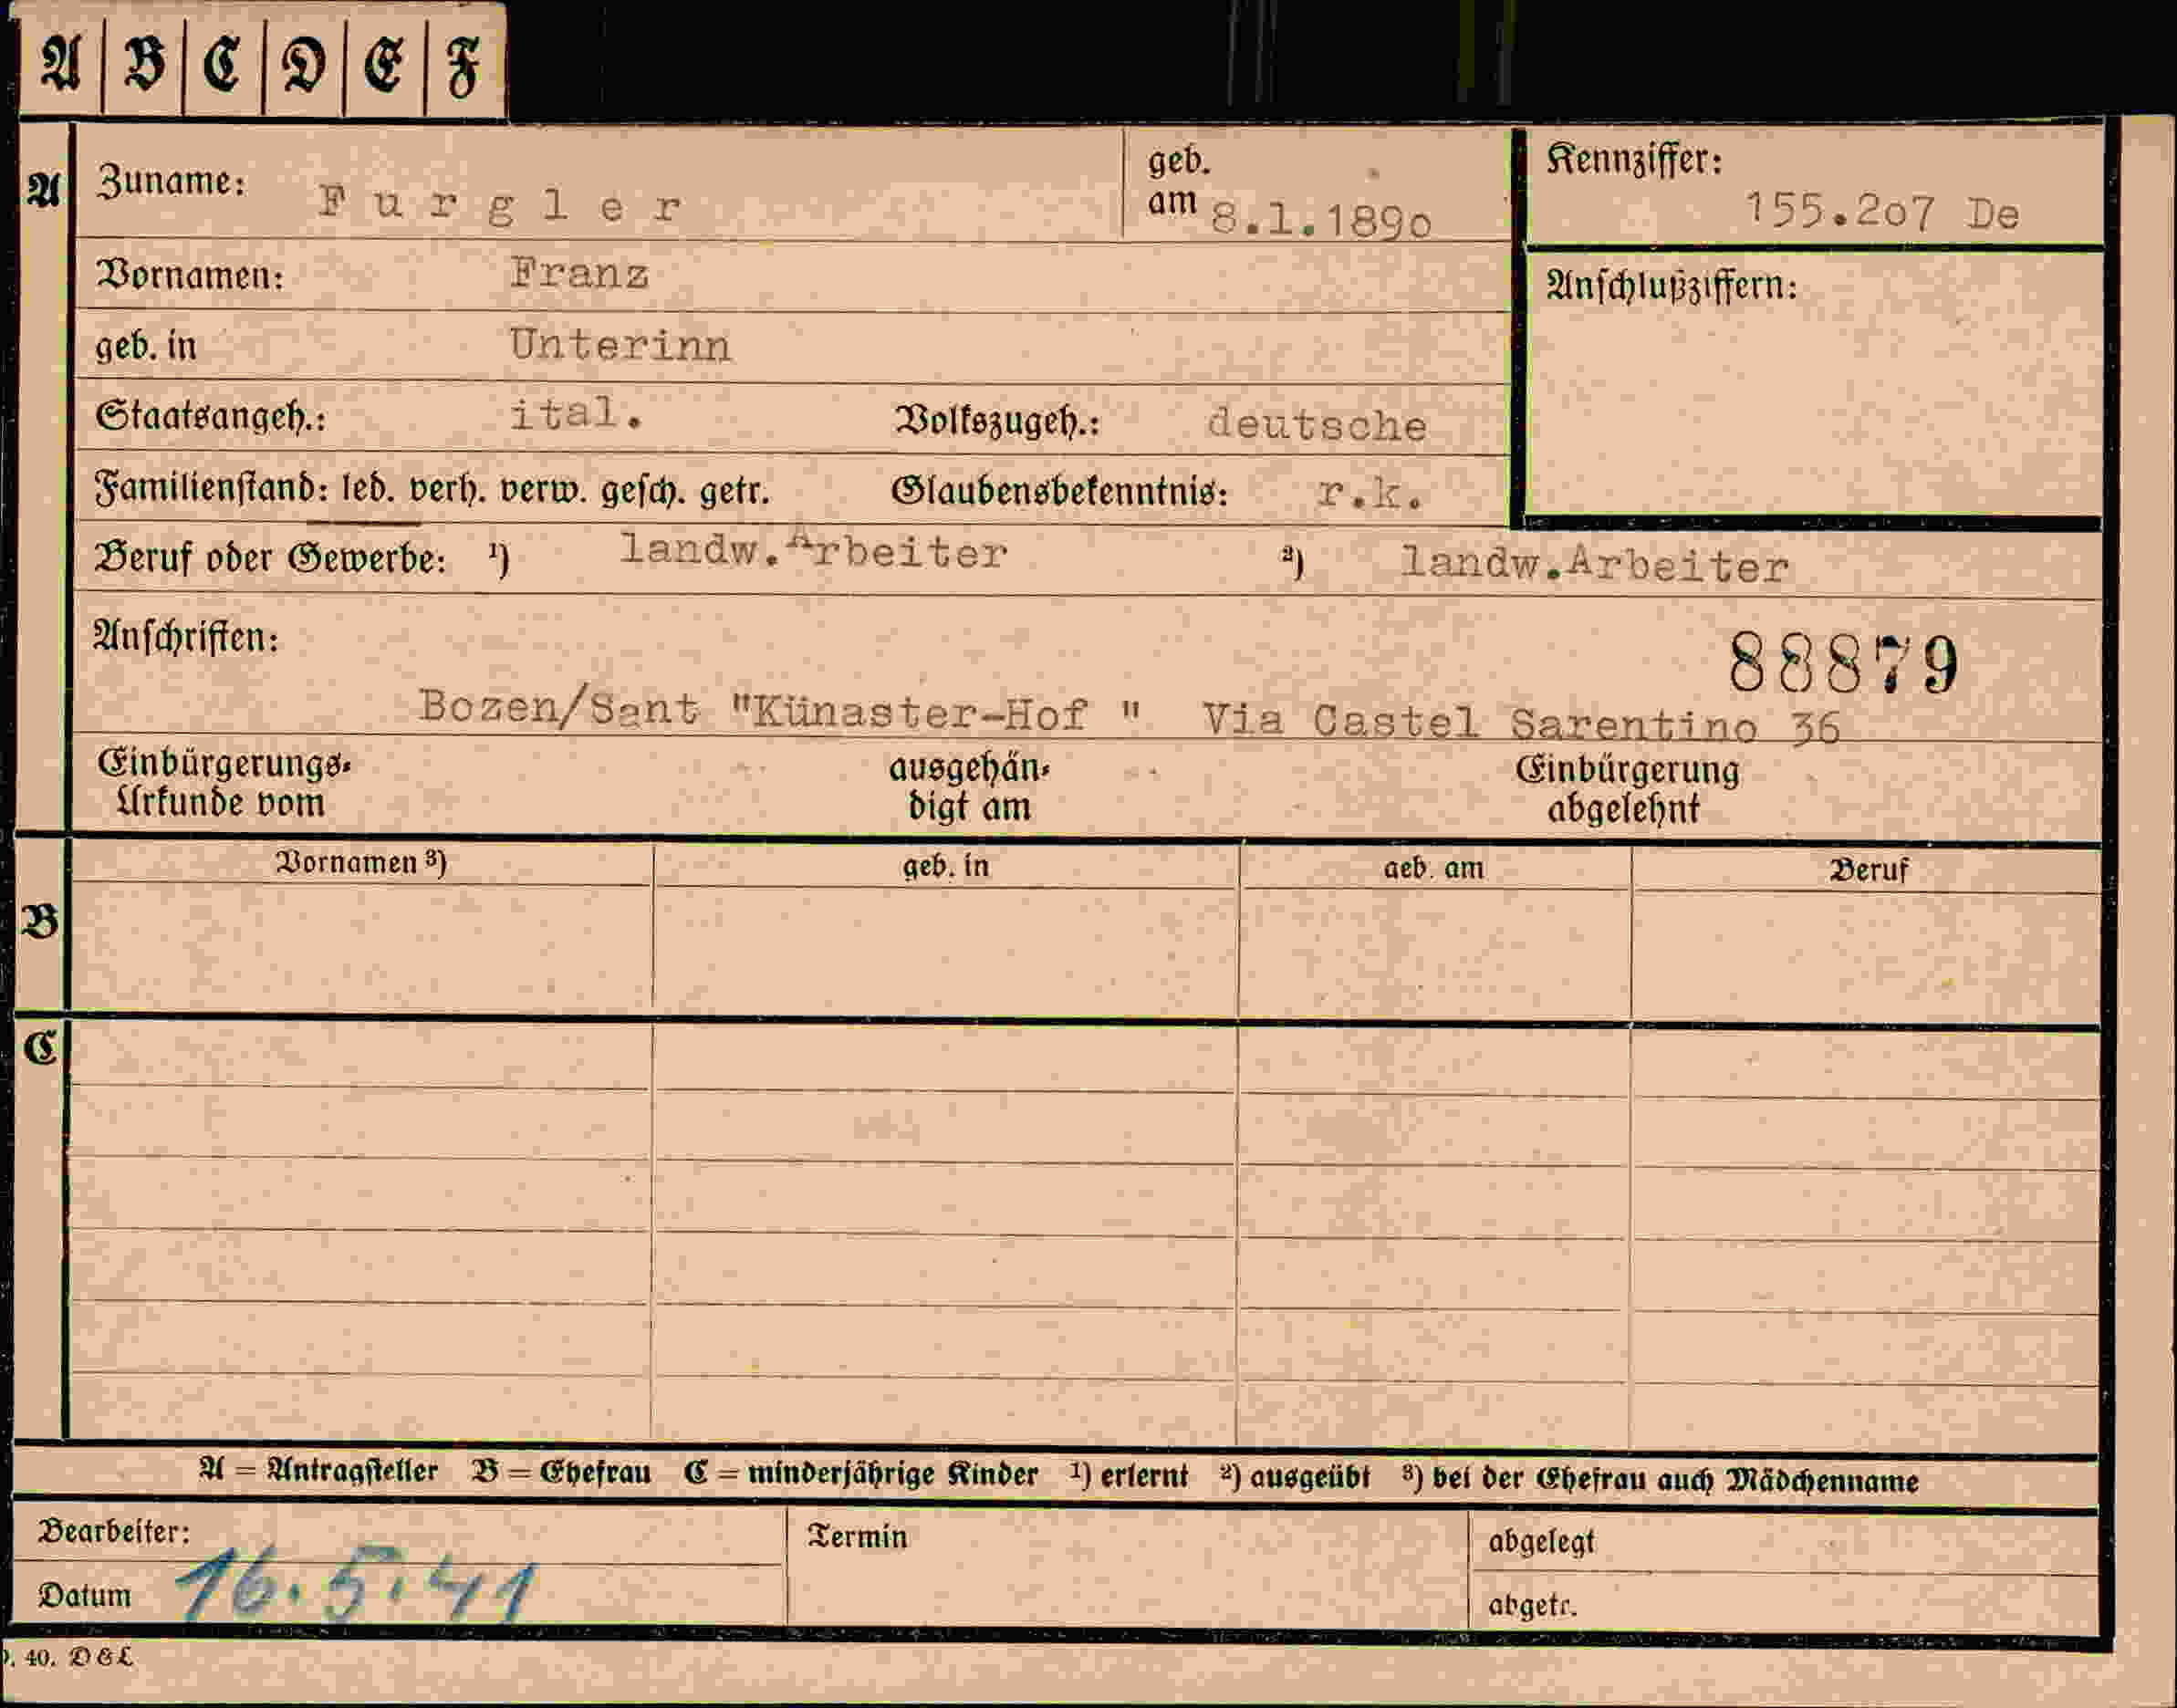 A B C D E F
A Zuname: Furgler geb. am 8.1.1890 Kennziffer: 155.207 De
Vornamen: Franz Anschlußziffern:
geb. in Unterinn
Staatsangeh.: ital. Volkszugeh.: deutsche
Familienstand: led. verh. verw. gesch. getr. Glaubensbekenntnis: r.k.
Beruf oder Gewerbe: ¹) landw.Arbeiter ²) landw.Arbeiter
Anschriften: 88879
Bozen/Sant "Künaster-Hof " Via Castel Sarentino 36
Einbürgerungs- ausgehän- Einbürgerung
Urkunde vom digt am abgelehnt
Vornamen ³) geb. in geb. am Beruf
B
C
A = Antragsteller B = Ehefrau C = minderjährige Kinder ¹) erlernt ²) ausgeübt ³) bei der Ehefrau auch Mädchenname
Bearbeiter: Termin abgelegt
Datum 16.5.41 abgetr.
40. D & L